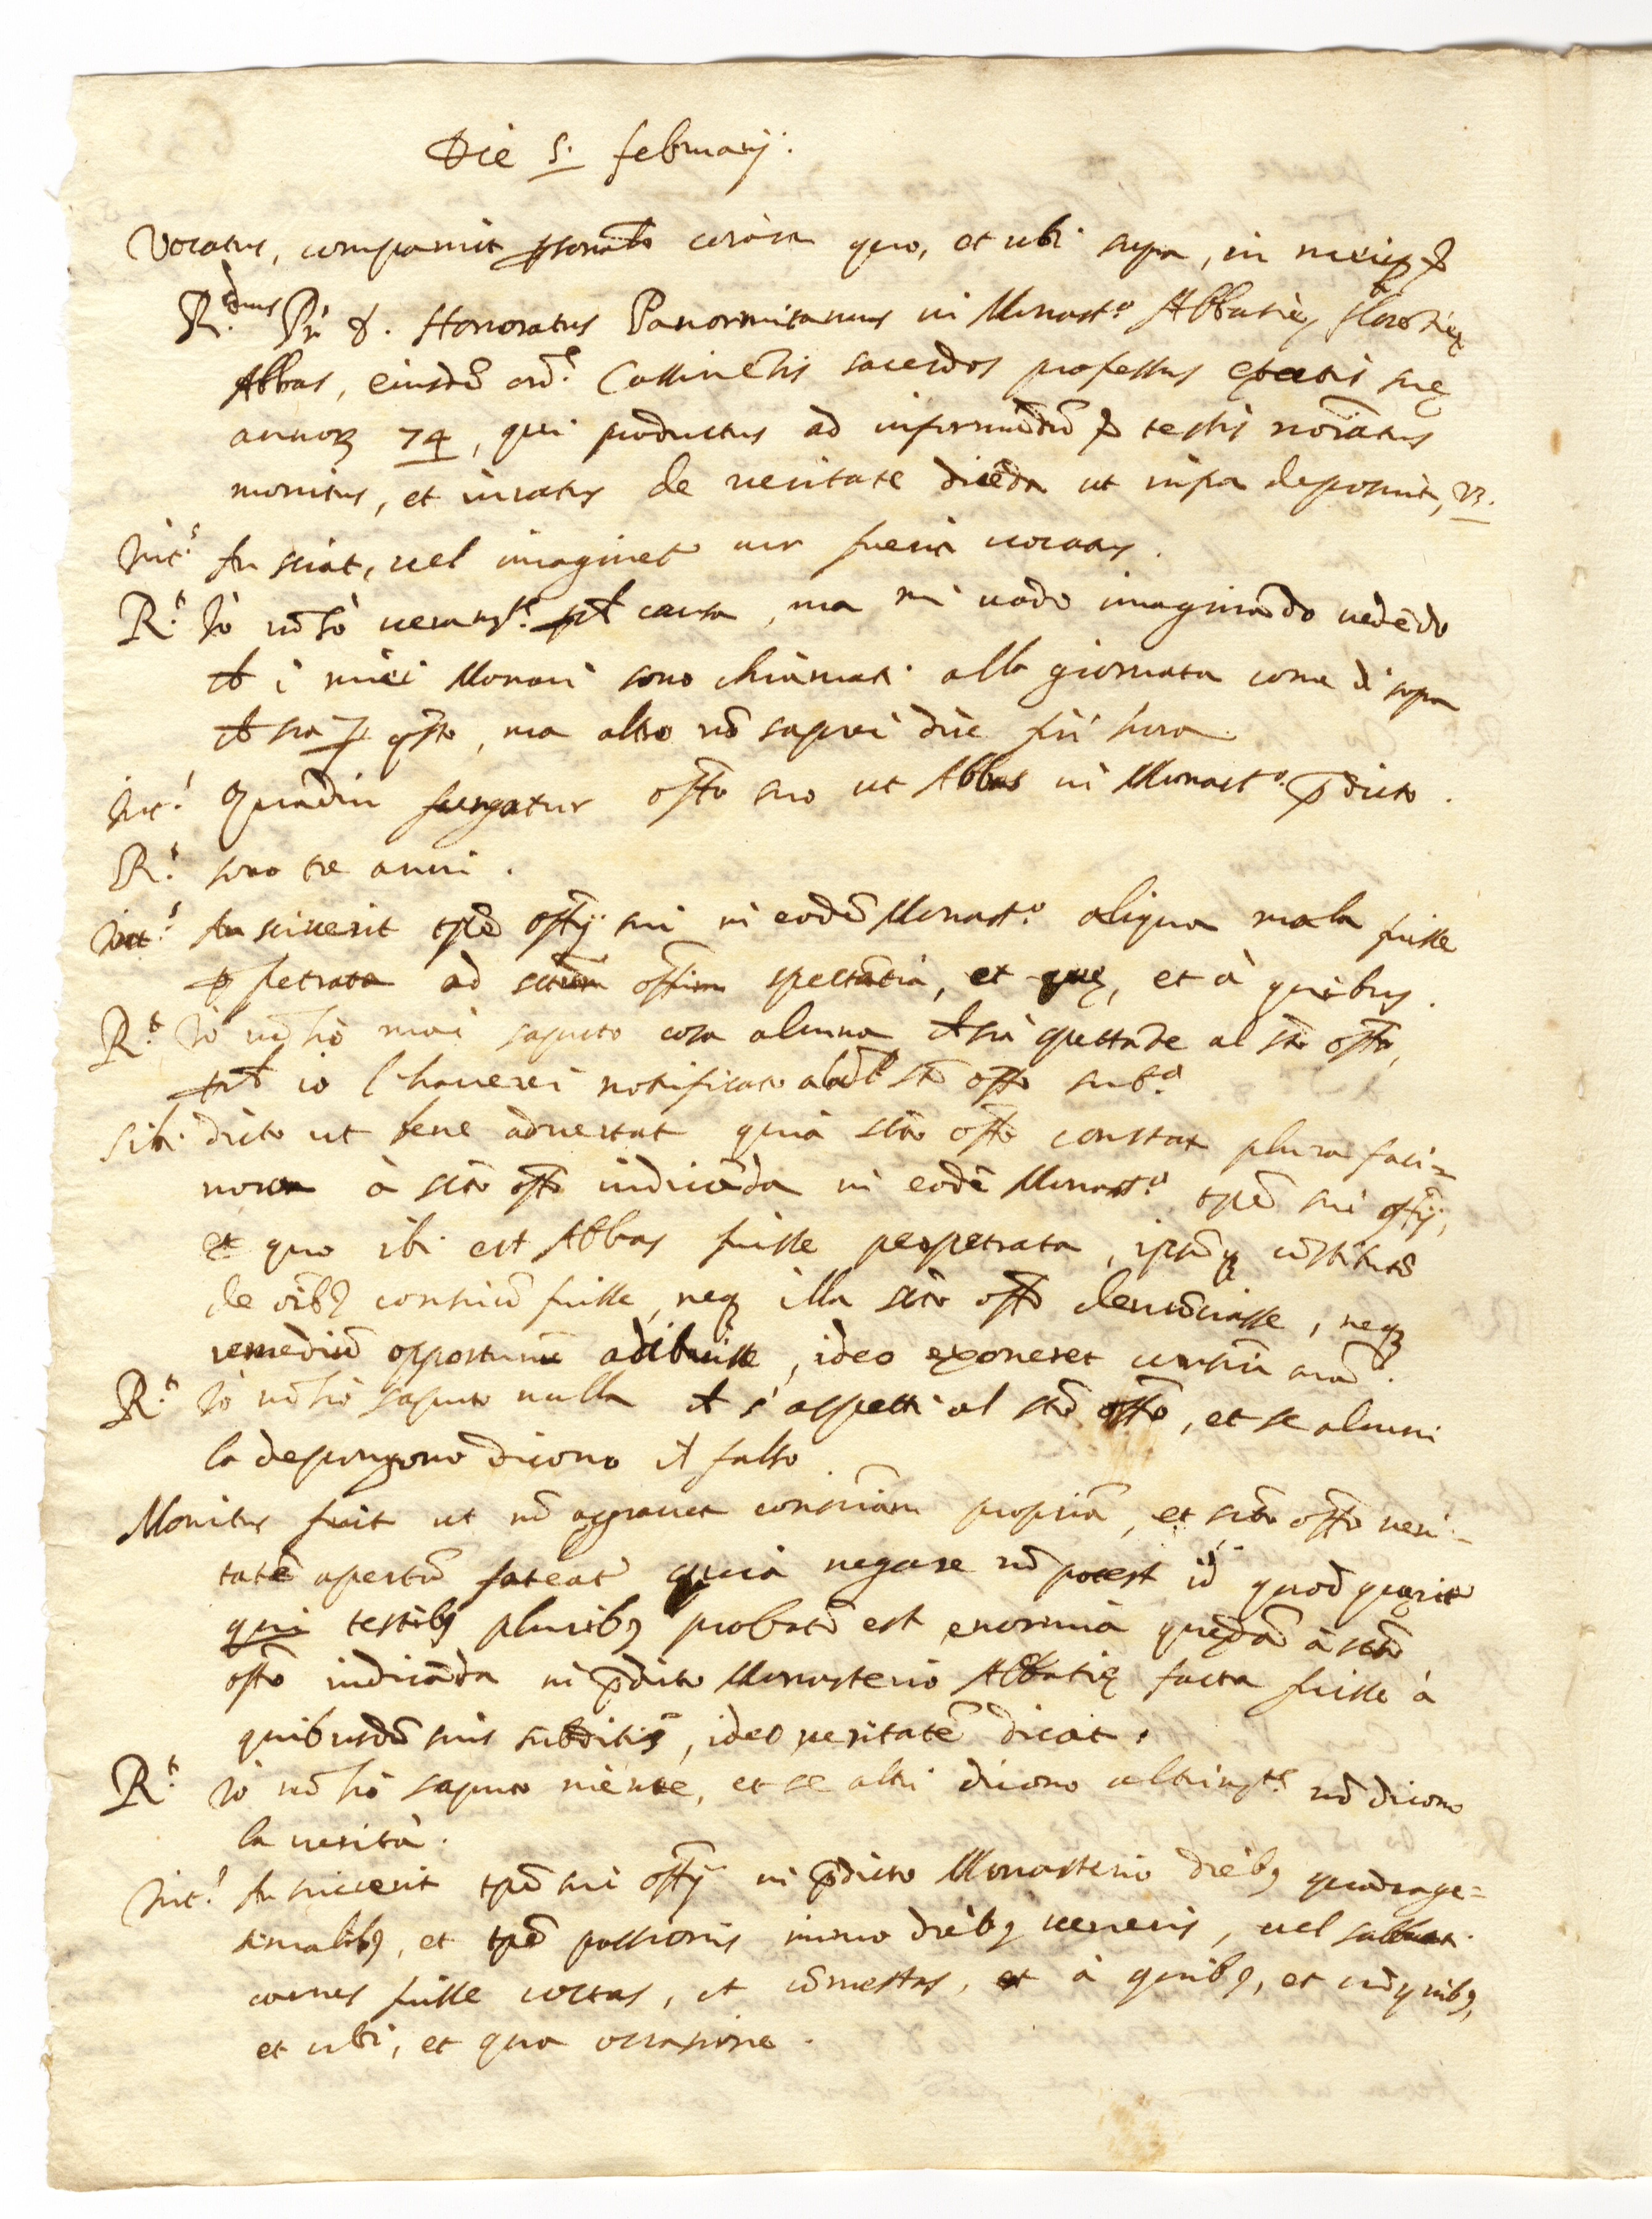 Die 5. februarij.
Vocatus, comparuit psonalr coram quo, et ubi supa, in meiq; p
R.dus Pr D. Honoratus Panormitanus in Monast.o Abbatię florētię
Abbas, eiusdē ord.s Cassinēsis sacerdos professus ętatis suę
annoꝝ 74, qui productus ad informādū p testis noīatus
monitus, et iuratus de veritate dicēda ut infra deposuit, vz.
Int.s An sciat, vel imaginet cur fuerit vocatus.
R.t Io nō sò veramte. pche causa, ma mi vado imaginādo vedēdo
che i miei Monaci sono chiamati alla giornata come di sopa
che sia p qsto, ma altro nō saprei dire fin' hora.
Int.s Quādiu fungatur offo suo ut Abbas in Monast.o pdicto.
R.t sono tre anni.
Int.s An sciverit tpe offij sui in eodē Monast.o aliqua mala fuisse
ppetrata ad sctum offium spectātia, et quę, et à quibus.
R.t Io nō hò mai saputo cosa alcuna che sia spettāte al sto offo,
pche io l'haverei notificato al dto sto offo sub.o
Sibi dicto ut bene advertat quia scto offo constat plura faci=
nora à scto offo iudicāda in eodē Monast.o tpe sui offij,
et quo ibi est Abbas fuisse perpetrata, ipsūq; cōstitutū
de oībꝰ consciū fuisse, neq; illa scto offo denūciasse, neq;
remediū opportunū adibuisse, ideo exoneret consciā suā.
R.t Io nō hò saputo nulla che s'aspetti al sto offo, et se alcuni
la depongono dicono il falso
Monitus fuit ut nō aggravet consciām propriā, et scto offo veri=
tatē apertū fateat quia negare nō potest id quod quęrit
qui testibꝰ pluribꝰ probatū est enormia quędā à scto
offo iudicāda in pdicto Monasterio Abbatię facta fuisse à
quibusdā suis subditis, ideo veritatē dicat.
R.t Io nō hò saputo niente, et se altri dicono altrimte nō dicono
la verità.
Int.s An sciverit tpe sui offij in pdicto Monasterio diebꝰ quadrage=
simalibꝰ, et tpe passionis immo diebꝰ veneris, vel sabbati
carnes fuisse coctas, et cōmestas, et à quibꝰ, et cū quibꝰ,
et ubi, et qua occasione.